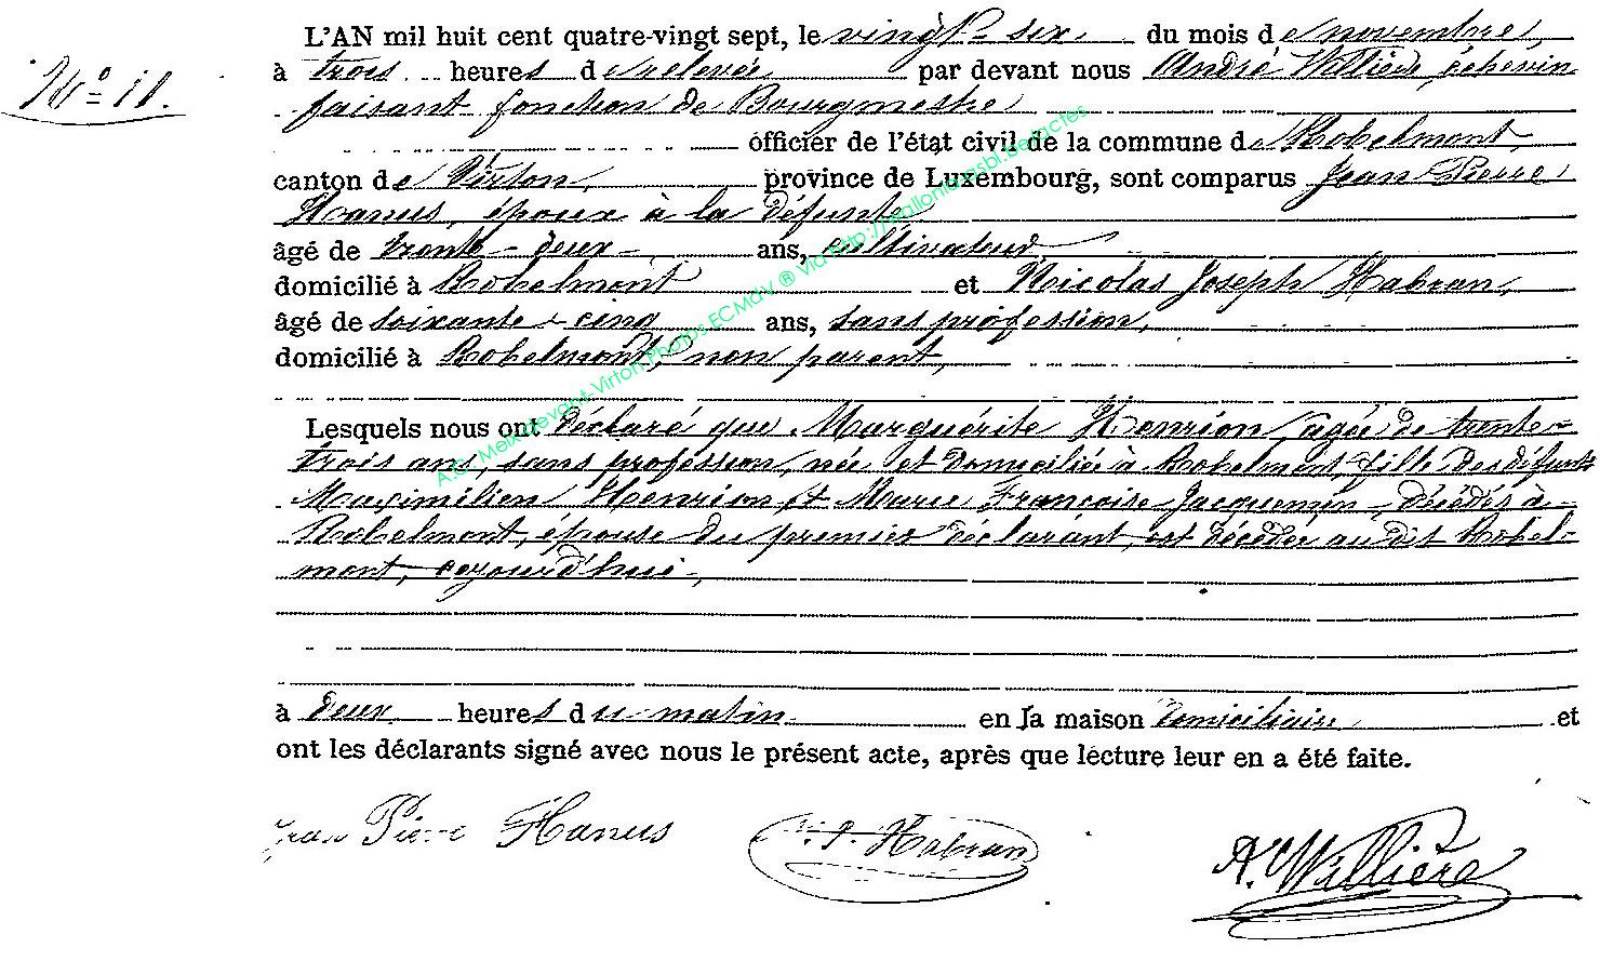 N° 11.
L'AN mil huit cent quatre-vingt sept, le vingt-six, du mois de novembre,
à trois heures de relevée par devant nous André Willière, échevin
faisant fonction de Bourgmestre
officier de l'état civil de la commune de Robelmont,
canton de Virton, province de Luxembourg, sont comparus Jean Pierre
Hanus, époux à la défunte
âgé de trente-deux ans, cultivateur
domicilié à Robelmont et Nicolas Joseph Habran,
âgé de soixante-cinq ans, sans profession,
domicilié à Robelmont, non parent,
Lesquels nous ont déclaré que Marguérite Henrion, agée de trente-
trois ans, sans profession, née et domiciliée à Robelmont, fille des défunts
Maximilien Henrion et Marie Françoise Jacquemin, décédés à
Robelmont, épouse du premier déclarant, est décédée au dit Robel-
mont, cejourd'hui,
à deux heures du matin en la maison domiciliaire et
ont les déclarants signé avec nous le présent acte, après que lecture leur en a été faite.
Jean Pierre Hanus
N. J. Habran
A. Willière
A.G. Meix devant-Virton Photos ECMdV ® Via http://wallonia-asbl.be/actes